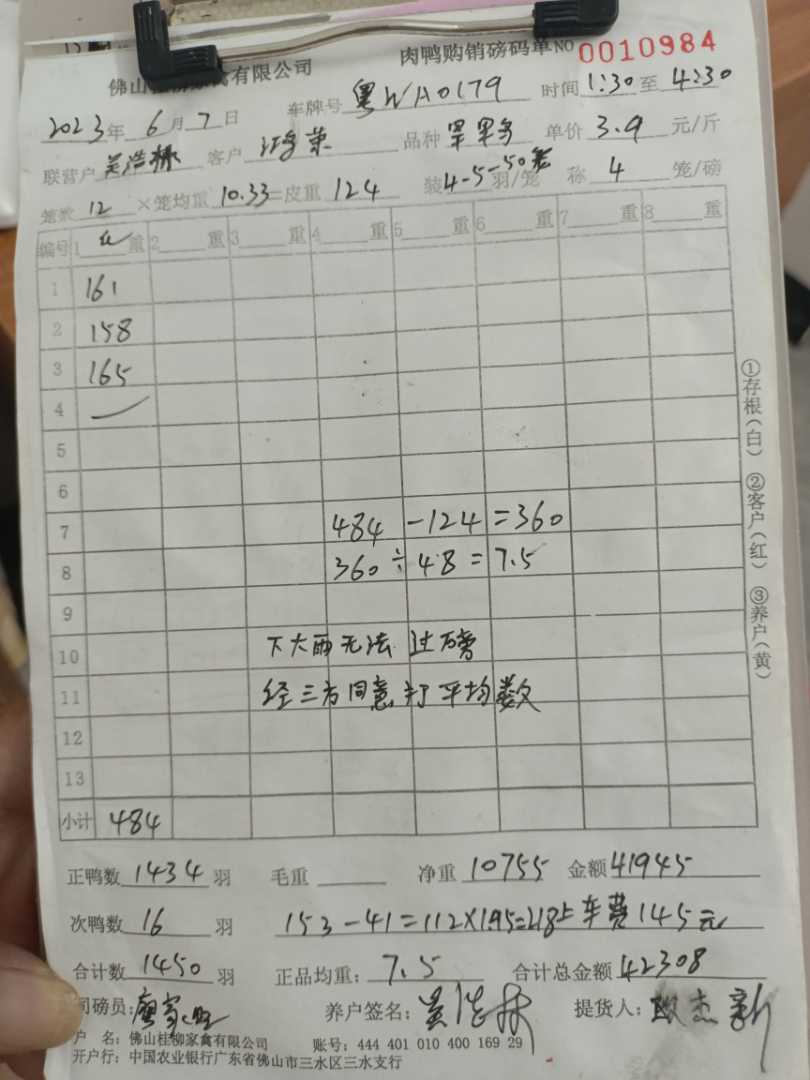 佛山桂柳家禽有限公司 肉鸭购销磅码单NO 0010984
2023年 6月 7日 车牌号 粤WA0179 时间 1:30 至 4:30
联营户 客户 品种 单价 3.9 元/斤
笼数 12 ×笼均重 10.33=皮重 124 装 4-5-50 羽/笼 称 4 笼/磅
编号 1 重 2 重 3 重 4 重 5 重 6 重 7 重 8 重
1 161
2 158
3 165
4
5
6
7 484 -124 =360
8 360 ÷ 48 = 7.5
9
10 下大雨无法过磅
11 经三方同意打平均数
12
13
小计 484
①存根(白) ②客户(红) ③养户(黄)
正鸭数 1434 羽 毛重 净重 10755 金额 41945
次鸭数 16 羽 153-41=112×1.95=218 车费145元
合计数 1450 羽 正品均重: 7.5 合计总金额 42308
司磅员: 养户签名: 提货人:
户 名: 佛山桂柳家禽有限公司 账号: 444 401 010 400 169 29
开户行: 中国农业银行广东省佛山市三水区三水支行